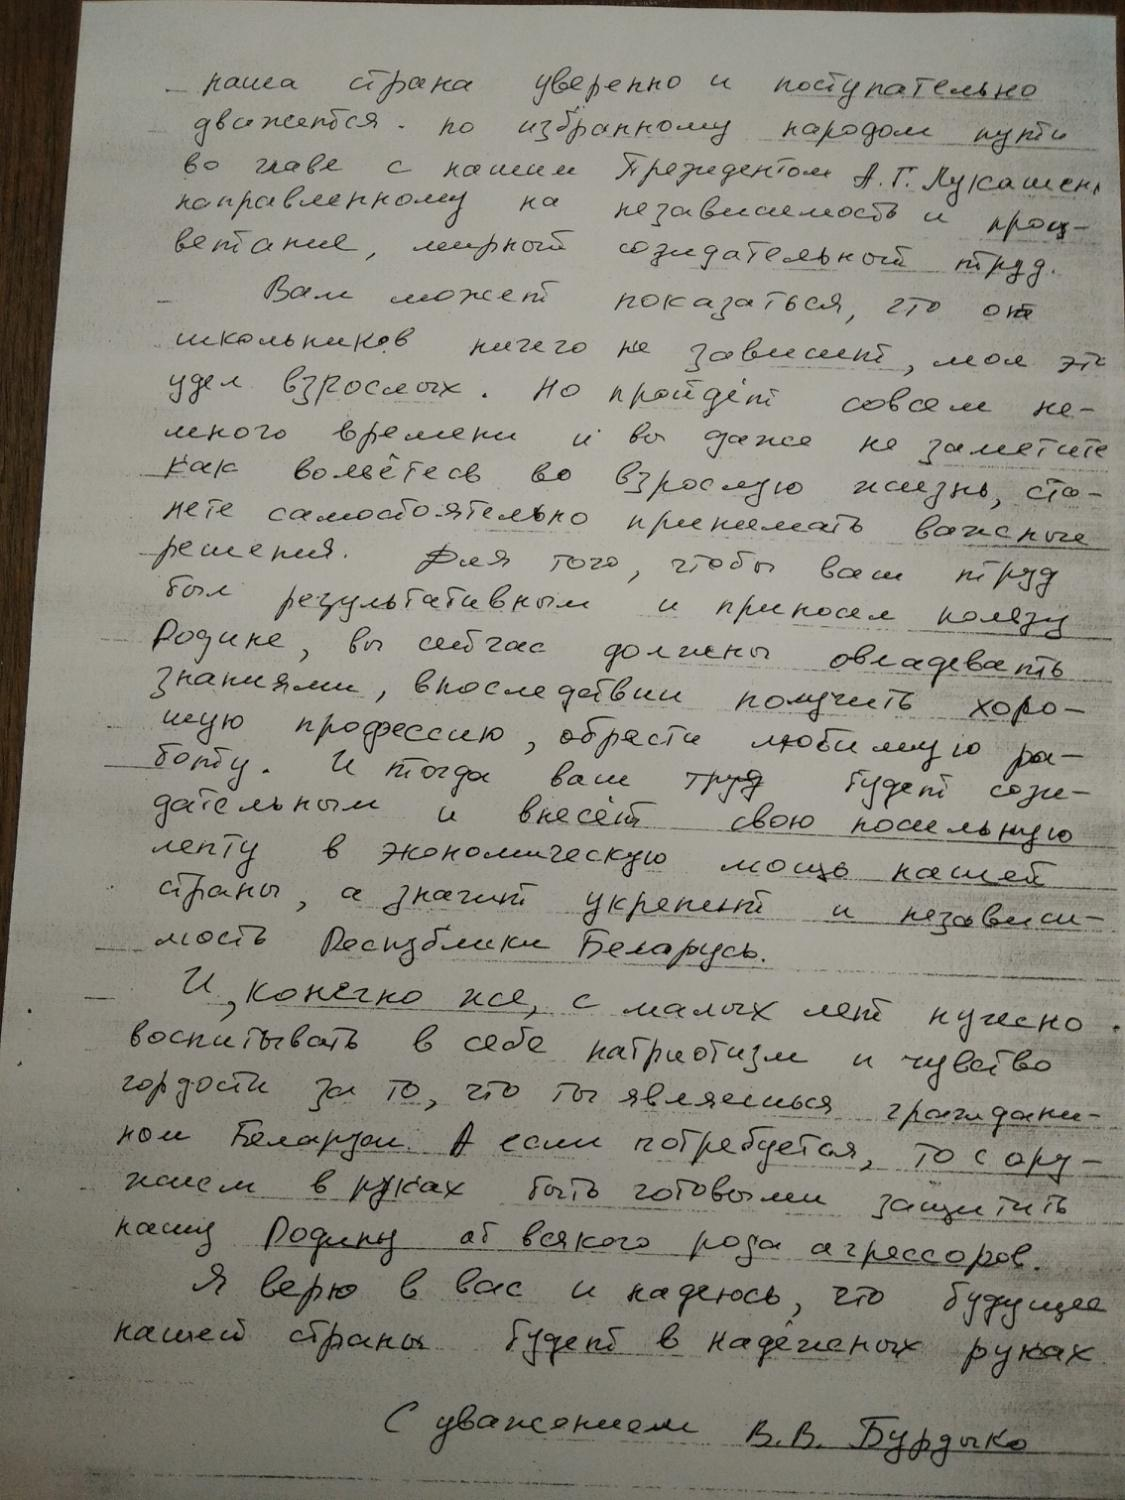 наша страна уверенно и поступательно
движется по избранному народом пути
во главе с нашим Президентом А.Г. Лукашен
направленному на независимость и проц-
ветание, мирный созидательный труд.
Вам может показаться, что от
школьников ничего не зависит, мол это
удел взрослых. Но пройдёт совсем не-
много времени и вы даже не заметите
как вольётесь во взрослую жизнь, ста-
нете самостоятельно принимать важные
решения. Для того, чтобы ваш труд
был результативным и приносил пользу
Родине, вы сейчас должны овладевать
знаниями, впоследствии получить хоро-
шую профессию, обрести любимую ра-
боту. И тогда ваш труд будет сози-
дательным и внесёт свою посильную
лепту в экономическую мощь нашей
страны, а значит укрепит и независи-
мость Республики Беларусь.
И, конечно же, с малых лет нужно
воспитывать в себе патриотизм и чувство
гордости за то, что ты являешься граждани-
ном Беларуси. А если потребуется, то с ору-
жием в руках быть готовыми защитить
нашу Родину от всякого рода агрессоров.
Я верю в вас и надеюсь, что будущее
нашей страны будет в надёжных руках
С уважением В.В. Бурдыко